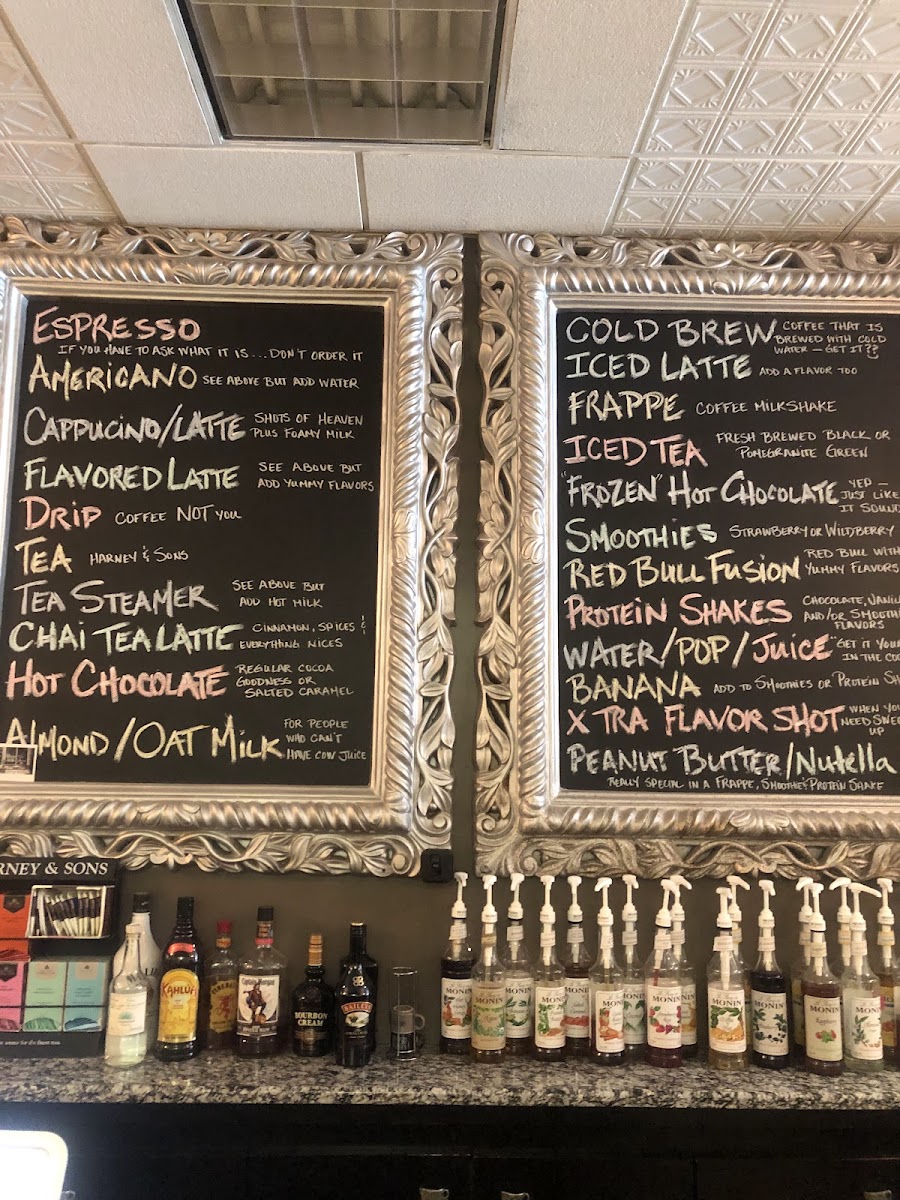 ESPRESSO
IF YOU HAVE TO ASK WHAT IT IS...DON'T ORDER IT
AMERICANO SEE ABOVE BUT ADD WATER
CAPPUCINO/LATTE SHOTS OF HEAVEN
PLUS FOAMY MILK
FLAVORED LATTE SEE ABOVE BUT
ADD YUMMY FLAVORS
DRIP COFFEE NOT YOU
TEA HARNEY & SONS
TEA STEAMER SEE ABOVE BUT
ADD HOT MILK
CHAI TEA LATTE CINNAMON, SPICES &
EVERYTHING NICES
HOT CHOCOLATE REGULAR COCOA
GOODNESS OR
SALTED CARAMEL
ALMOND/OAT MILK FOR PEOPLE
WHO CAN'T
HAVE COW JUICE
COLD BREW COFFEE THAT IS
BREWED WITH COLD
WATER - GET IT??
ICED LATTE ADD A FLAVOR TOO
FRAPPE COFFEE MILKSHAKE
ICED TEA FRESH BREWED BLACK OR
POMEGRANITE GREEN
"FROZEN" HOT CHOCOLATE YEP -
JUST LIKE
IT SOUND
SMOOTHIES STRAWBERRY OR WILDBERRY
RED BULL FUSION RED BULL WITH
YUMMY FLAVORS
PROTEIN SHAKES CHOCOLATE, VANIL
AND/OR SMOOTH
FLAVORS
WATER/POP/JUICE "GET IT YOUR
IN THE COO
BANANA ADD TO SMOOTHIES OR PROTEIN SH
X TRA FLAVOR SHOT WHEN YOU
NEED SWEE
UP
PEANUT BUTTER/Nutella
REALLY SPECIAL IN A FRAPPE, SMOOTHIE & PROTEIN SHAKE
RNEY & SONS
KAHLÚA
FIREBALL
Captain Morgan
BOURBON
CREAM
BAILEYS
MONIN
MONIN
MONIN
MONIN
MONIN
MONIN
MONIN
MONIN
MONIN
MONIN
MONIN
MONIN